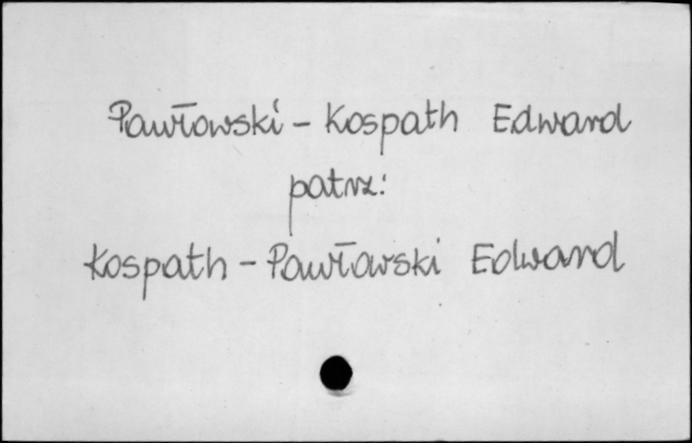 Pawłowski - Kospath Edward
patrz:
Kospath - Pawłowski Edward